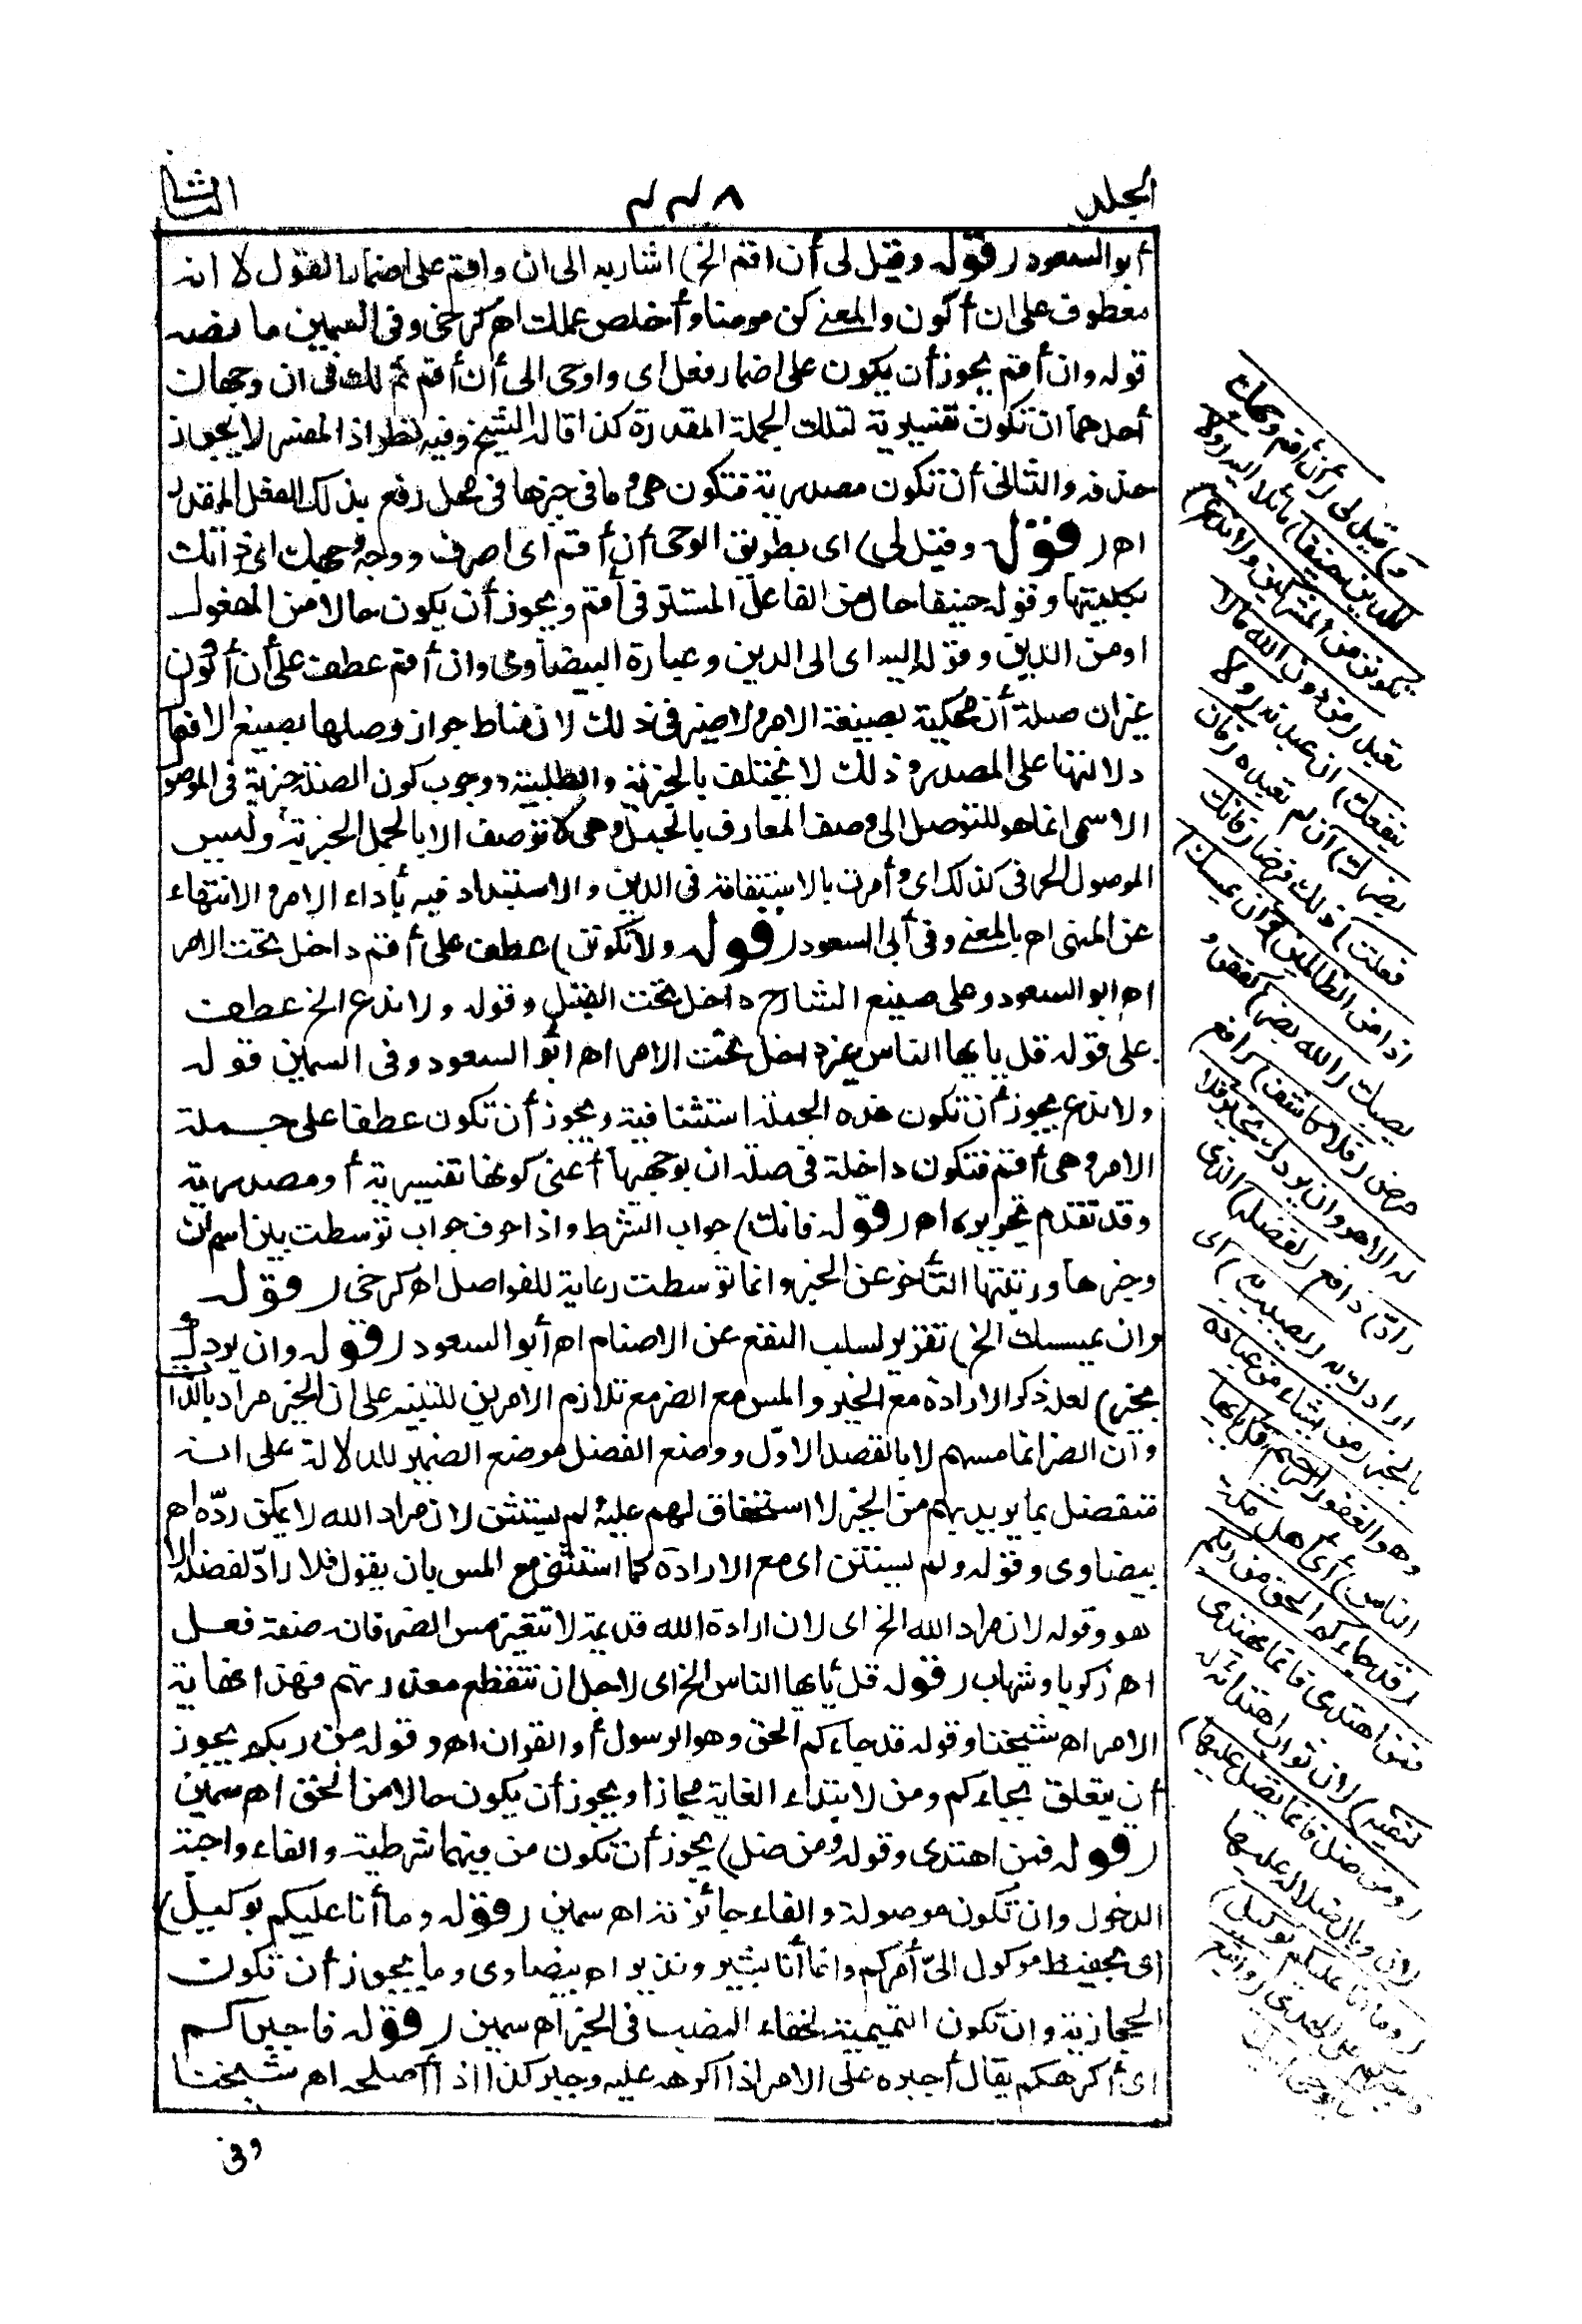 المجلد ٤٤٨ الثاني
أبو السعود (قوله وقيل لي أن أقم الخ) اشار به الى ان وأقم على اضمار القول لا انه
معطوف على ان أكون والمعنى كن مومنا وأخلص عملك اه كرخي وفي السمين ما نصه
قوله وان أقم يجوز أن يكون على اضمار فعل اى واوحى الى أن أقم ثم لك فى ان وجهان
أحدهما ان تكون تفسيرية لتلك الجملة المقدرة كذا قاله الشيخ وفيه نظر اذ المفسر لا يجوز
حذفه والثانى أن تكون مصدرية فتكون هى وما فى حيزها فى محل رفع بذلك الفعل المقدر
اه (قوله وقيل لى) اى بطريق الوحى أن أقم اى اصرف ووجه وجهك اى ذاتك
بكليتها وقوله حنيفا حال من الفاعل المستتر فى أقم ويجوز أن يكون حالا من المفعول
او من الدين وقوله اليه اى الى الدين وعبارة البيضاوى وان أقم عطف على أن أكون
غير ان صلة أن محكية بصيغة الامر ولا ضير فى ذلك لان مناط جواز وصلها بصيغ الافعال
دلالتها على المصدر وذلك لا يختلف بالخبرية والطلبية ووجوب كون الصلة خبرية فى الموصول
الاسمى انما هو للتوصل الى وصف المعارف بالجمل وهى لا توصف الا بالجمل الخبرية وليس
الموصول الحرفى كذلك اى وأمرت بالاستقامة فى الدين والاستبداد فيه بأداء الامر والانتهاء
عن المنهى اه بالمعنى وفى أبى السعود (قوله ولا تكونن) عطف على أقم داخل تحت الامر
اه ابو السعود وعلى صنيع الشارح داخل تحت القيل وقوله ولا تدع الخ عطف
على قوله قل يايها الناس غير داخل تحت الامر اه ابو السعود وفى السمين قوله
ولا تدع يجوز أن تكون هذه الجملة استئنافية ويجوز أن تكون عطفا على جملة
الامر وهى أقم فتكون داخلة فى صلة ان بوجهيها أعنى كونها تفسيرية أو مصدرية
وقد تقدم تحريره اه (قوله فانك) جواب الشرط واذا حرف جواب توسطت بين اسم ان
وخبرها ورتبتها التأخر عن الخبر وانما توسطت رعاية للفواصل اه كرخى (قوله
وان يمسسك الخ) تقرير لسلب النفع عن الاصنام اه أبو السعود (قوله وان يردك
بخير) لعله ذكر الارادة مع الخير والمس مع الضر مع تلازم الامرين للتنبيه على ان الخير مراد بالذات
وأن الضر انما مسهم لا بالقصد الاول ووضع الفضل موضع الضمير للدلالة على انه
متفضل بما يريد بهم من الخير لا استحقاق لهم عليه ولم يستثن لان مراد الله لا يمكن ردّه اه
بيضاوى وقوله ولم يستثن اى مع الارادة كما استثنى مع المس بان يقول فلا رادّ لفضله الا
هو وقوله لان مراد الله الخ اى لان ارادة الله قديمة لا تتغير مس الضر فانه صفة فعل
اه زكريا وشهاب (قوله قل يأيها الناس الخ اى لاجل ان تنقطع معذرتهم فهذا غاية
الامر اه شيخنا وقوله قد جاءكم الحق وهو الرسول أو القران اه وقوله من ربكم يجوز
أن يتعلق بجاءكم ومن لابتداء الغاية مجازا ويجوز أن يكون حالا من الحق اه سمين
(قوله فمن اهتدى وقوله ومن ضل) يجوز أن تكون من فيهما شرطية والفاء واجبة
الدخول وان تكون موصولة والفاء جائزته اه سمين (قوله وما أنا عليكم بوكيل)
اى بحفيظ موكول الىّ أمركم وانما أنا بشير ونذير اه بيضاوى وما يجوز أن تكون
الحجازية وان تكون التميمية لخفاء النصب فى الخبر اه سمين (قوله فاجبركم
اى أكرهكم يقال أجبره على الامر اذا أكرهه عليه وجبر كذا اذا أصلحه اه شيخنا
وفى
و) قيل لى (أن أقم وجهك
للدين حنيفا) مائلا اليه (ولا
تكونن من المشركين ولا تدع)
تعبد (من دون الله مالا
ينفعك) ان عبدته (ولا
يضرك) ان لم تعبده (فان
فعلت) ذلك فرضا (فانك
اذا من الظالمين وان يمسسك)
يصبك (الله بضر) كفقر و
مرض (فلا كاشف) رافع
له الا هو وان يردك بخير فلا
رادّ) دافع (لفضله) الذى
ارادك به (يصيب به) اى
بالخير (من يشاء من عباده
وهو الغفور الرحيم قل يايها
الناس) أى أهل مكة
(قد جاءكم الحق من ربكم
فمن اهتدى فانما يهتدى
لنفسه) لان ثواب اهتدائه له
(ومن ضل فانما يضل عليها)
لان وبال ضلاله عليها
(وما أنا عليكم بوكيل)
فاجبركم على الهدى (واتبع
ما يوحى اليك